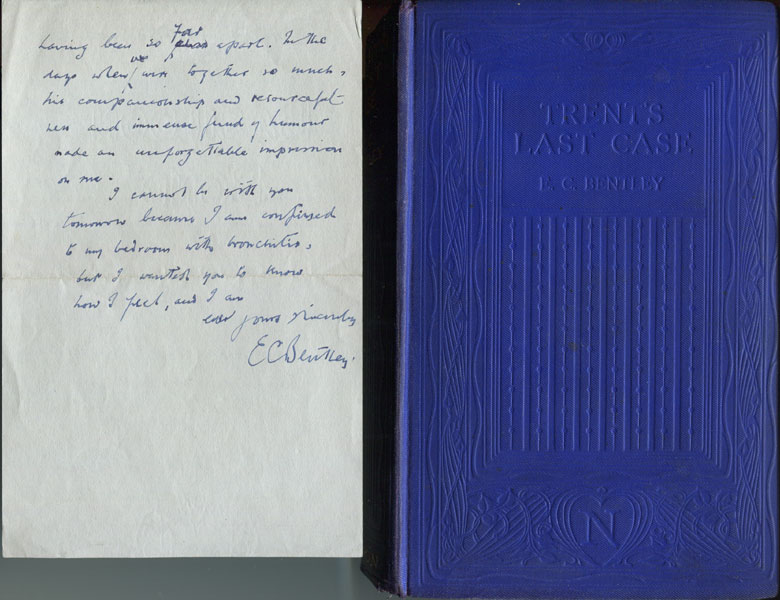 having been so far apart. In the
days when we were together so much,
his companionship and resourceful
ness and immense fund of humour
made an unforgettable impression
on me.
I cannot be with you
tomorrow because I am confined
to my bedroom with bronchitis,
but I wanted you to know
how I feel, and I am
yours sincerely
E C Bentley.
TRENT'S
LAST CASE
E. C. BENTLEY
N